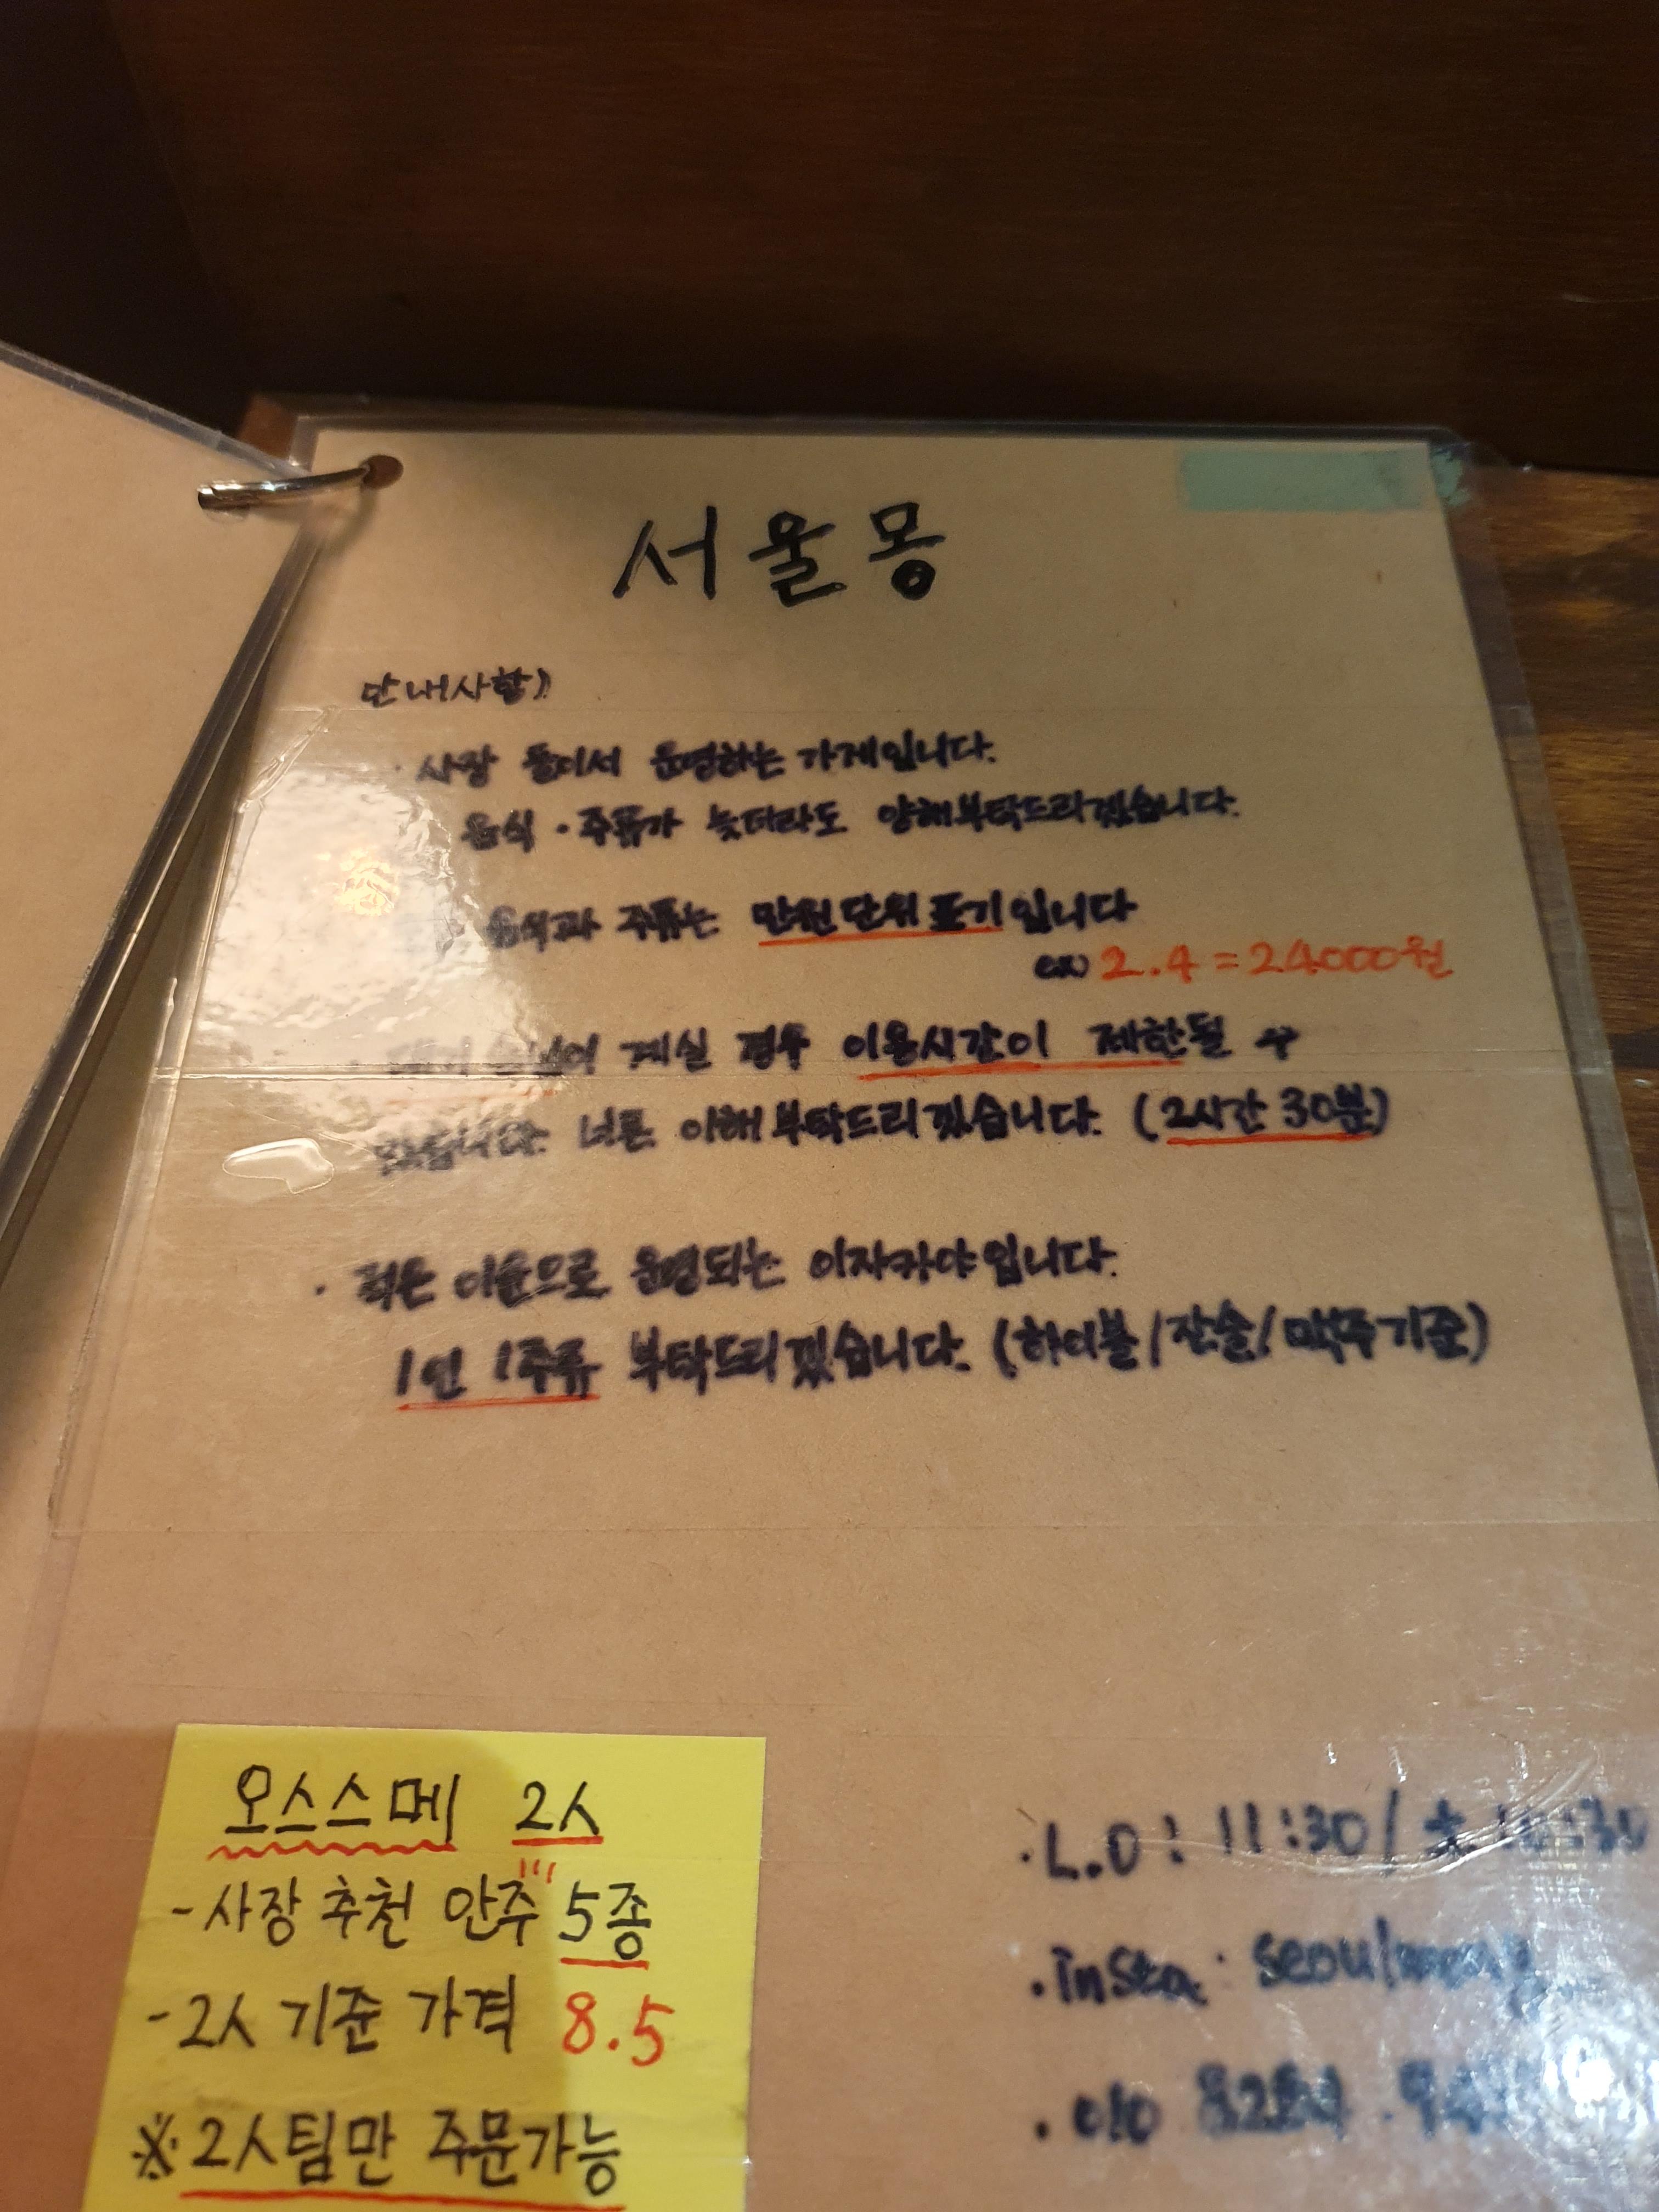 서울몽
안내사항)
· 사장 둘이서 운영하는 가게입니다.
음식 · 주류가 늦더라도 양해부탁드리겠습니다.
음식과 주류는 만원단위 표기입니다
ex) 2.4 = 24000원
계실 경우 이용시간이 제한될 수
있습니다. 너른 이해 부탁드리겠습니다. (2시간 30분)
· 적은 이윤으로 운영되는 이자카야입니다.
1인 1주류 부탁드리겠습니다. (하이볼/잔술/맥주기준)
오스스메 2人
- 사장 추천 안주 5종
- 2人 기준 가격 8.5
※ 2人팀만 주문가능
· L.O : 11:30 /
· insta : seoulmong
· 010